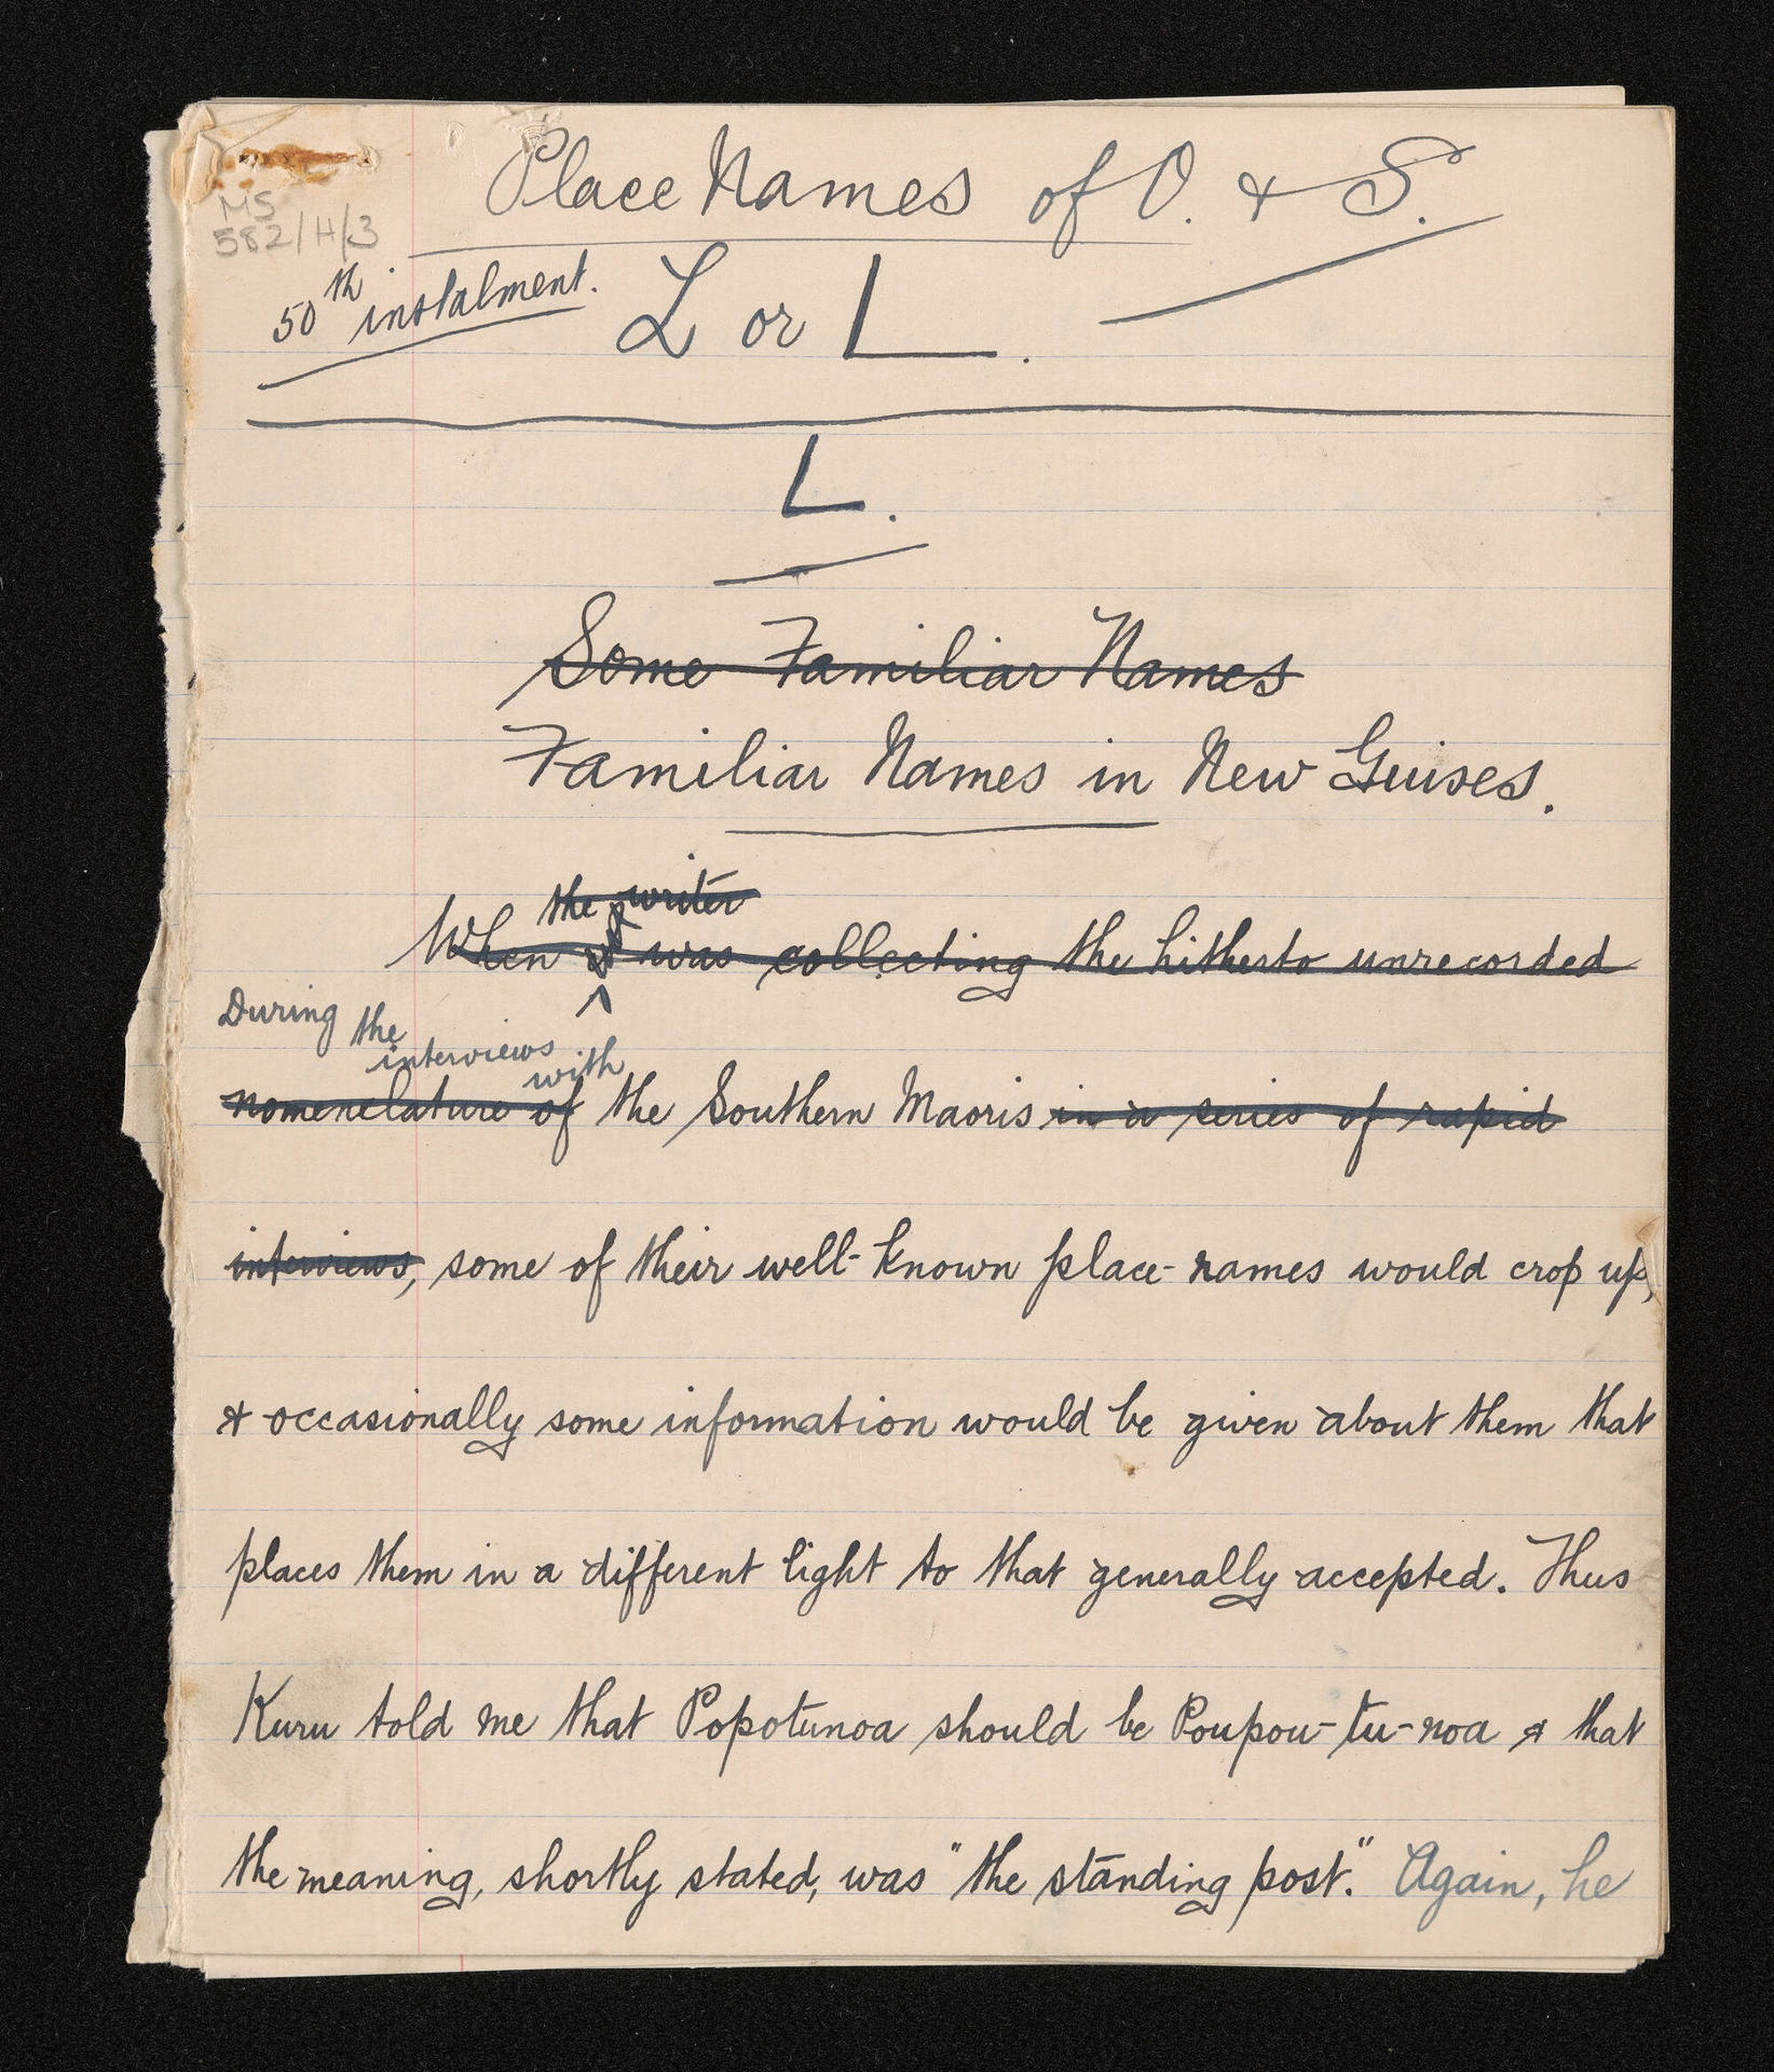 Place Names of O. & S.
MS
582/H/3
50th instalment. L or L.
L.
Some Familiar Names
Familiar Names in New Guises.
the writer
When was collecting the hitherto unrecorded
During the
interviews
with
nomenclature of the Southern Maoris in a series of rapid
interviews, some of their well-known place-names would crop up,
& occasionally some information would be given about them that
places them in a different light to that generally accepted. Thus
Kuru told me that Popotunoa should be Poupou-tu-noa & that
the meaning, shortly stated, was "the standing post." Again, he